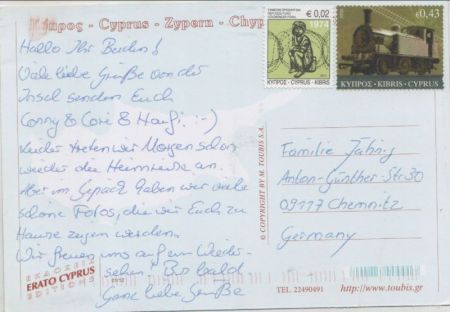 Κύπρος - Cyprus - Zypern - Chyp
ΤΑΜΕΙΟΝ ΠΡΟΣΦΥΓΩΝ
REFUGEE FUND
€ 0,02
1974
ΚΥΠΡΟΣ - CYPRUS - KIBRIS
€0,43
ΚΥΠΡΟΣ - KIBRIS - CYPRUS
Hallo Ihr Beiden!
Viele liebe Grüße von der
Insel senden Euch
Conny & & :-)
Leider treten wir Morgen schon
wieder die Heimreise an.
Aber im Gepäck haben wir viele
schöne Fotos, die wir Euch zu
Hause zeigen werden.
Wir freuen uns auf ein Wieder-
sehen! Bis bald
Ganz liebe Grüße
Familie
Anton-Günther-Str 30
09117 Chemnitz
Germany
© COPYRIGHT BY M. TOUBIS S.A.
ΕΚΔΟΣΕΙΣ
ERATO CYPRUS
EDITIONS
TEL 22490491
http://www.toubis.gr